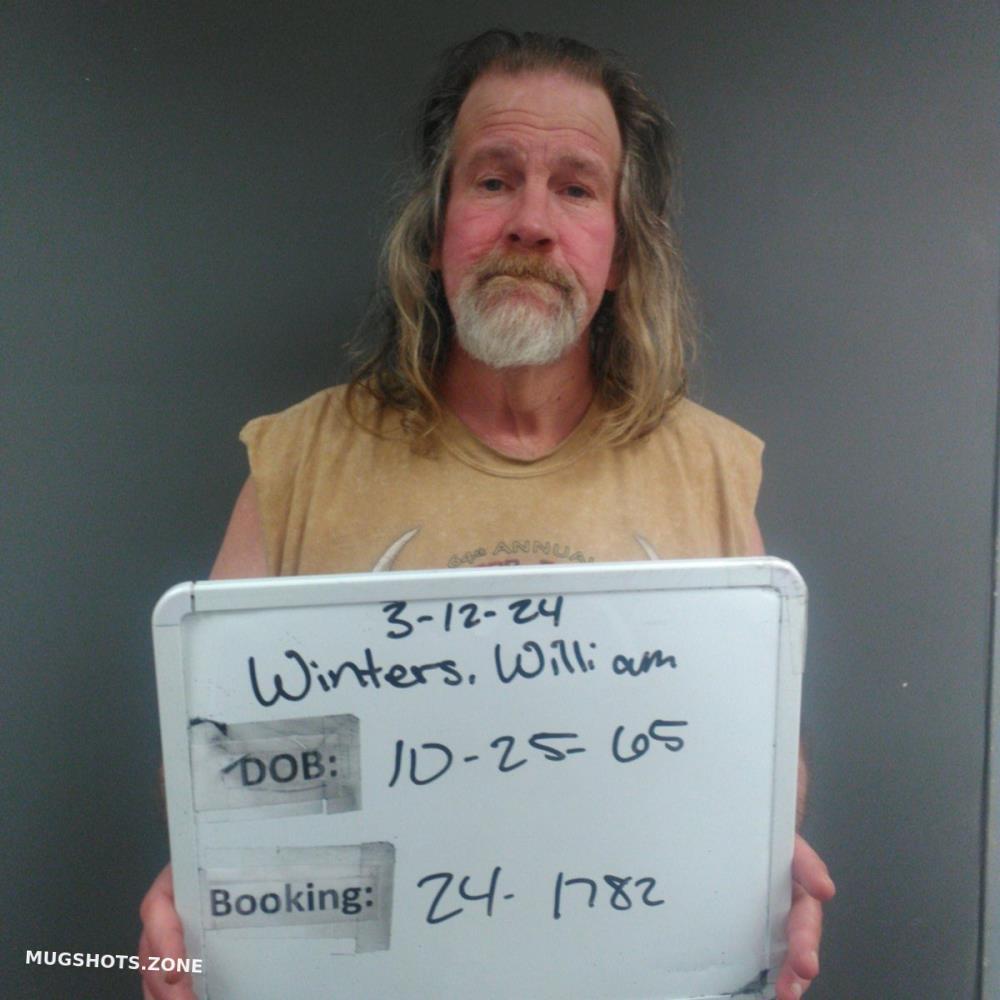 64th ANNUAL
3-12-24
Winters, William
DOB: 10-25-65
Booking: 24-1782
MUGSHOTS.ZONE